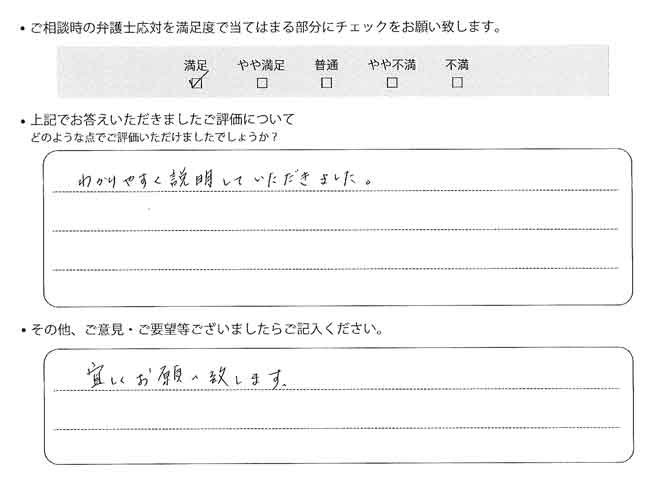 ・ご相談時の弁護士応対を満足度で当てはまる部分にチェックをお願い致します。
満足 やや満足 普通 やや不満 不満
☑ □ □ □ □
・上記でお答えいただきましたご評価について
どのような点でご評価いただけましたでしょうか？
わかりやすく説明していただきました。
・その他、ご意見・ご要望等ございましたらご記入ください。
宜しくお願い致します。